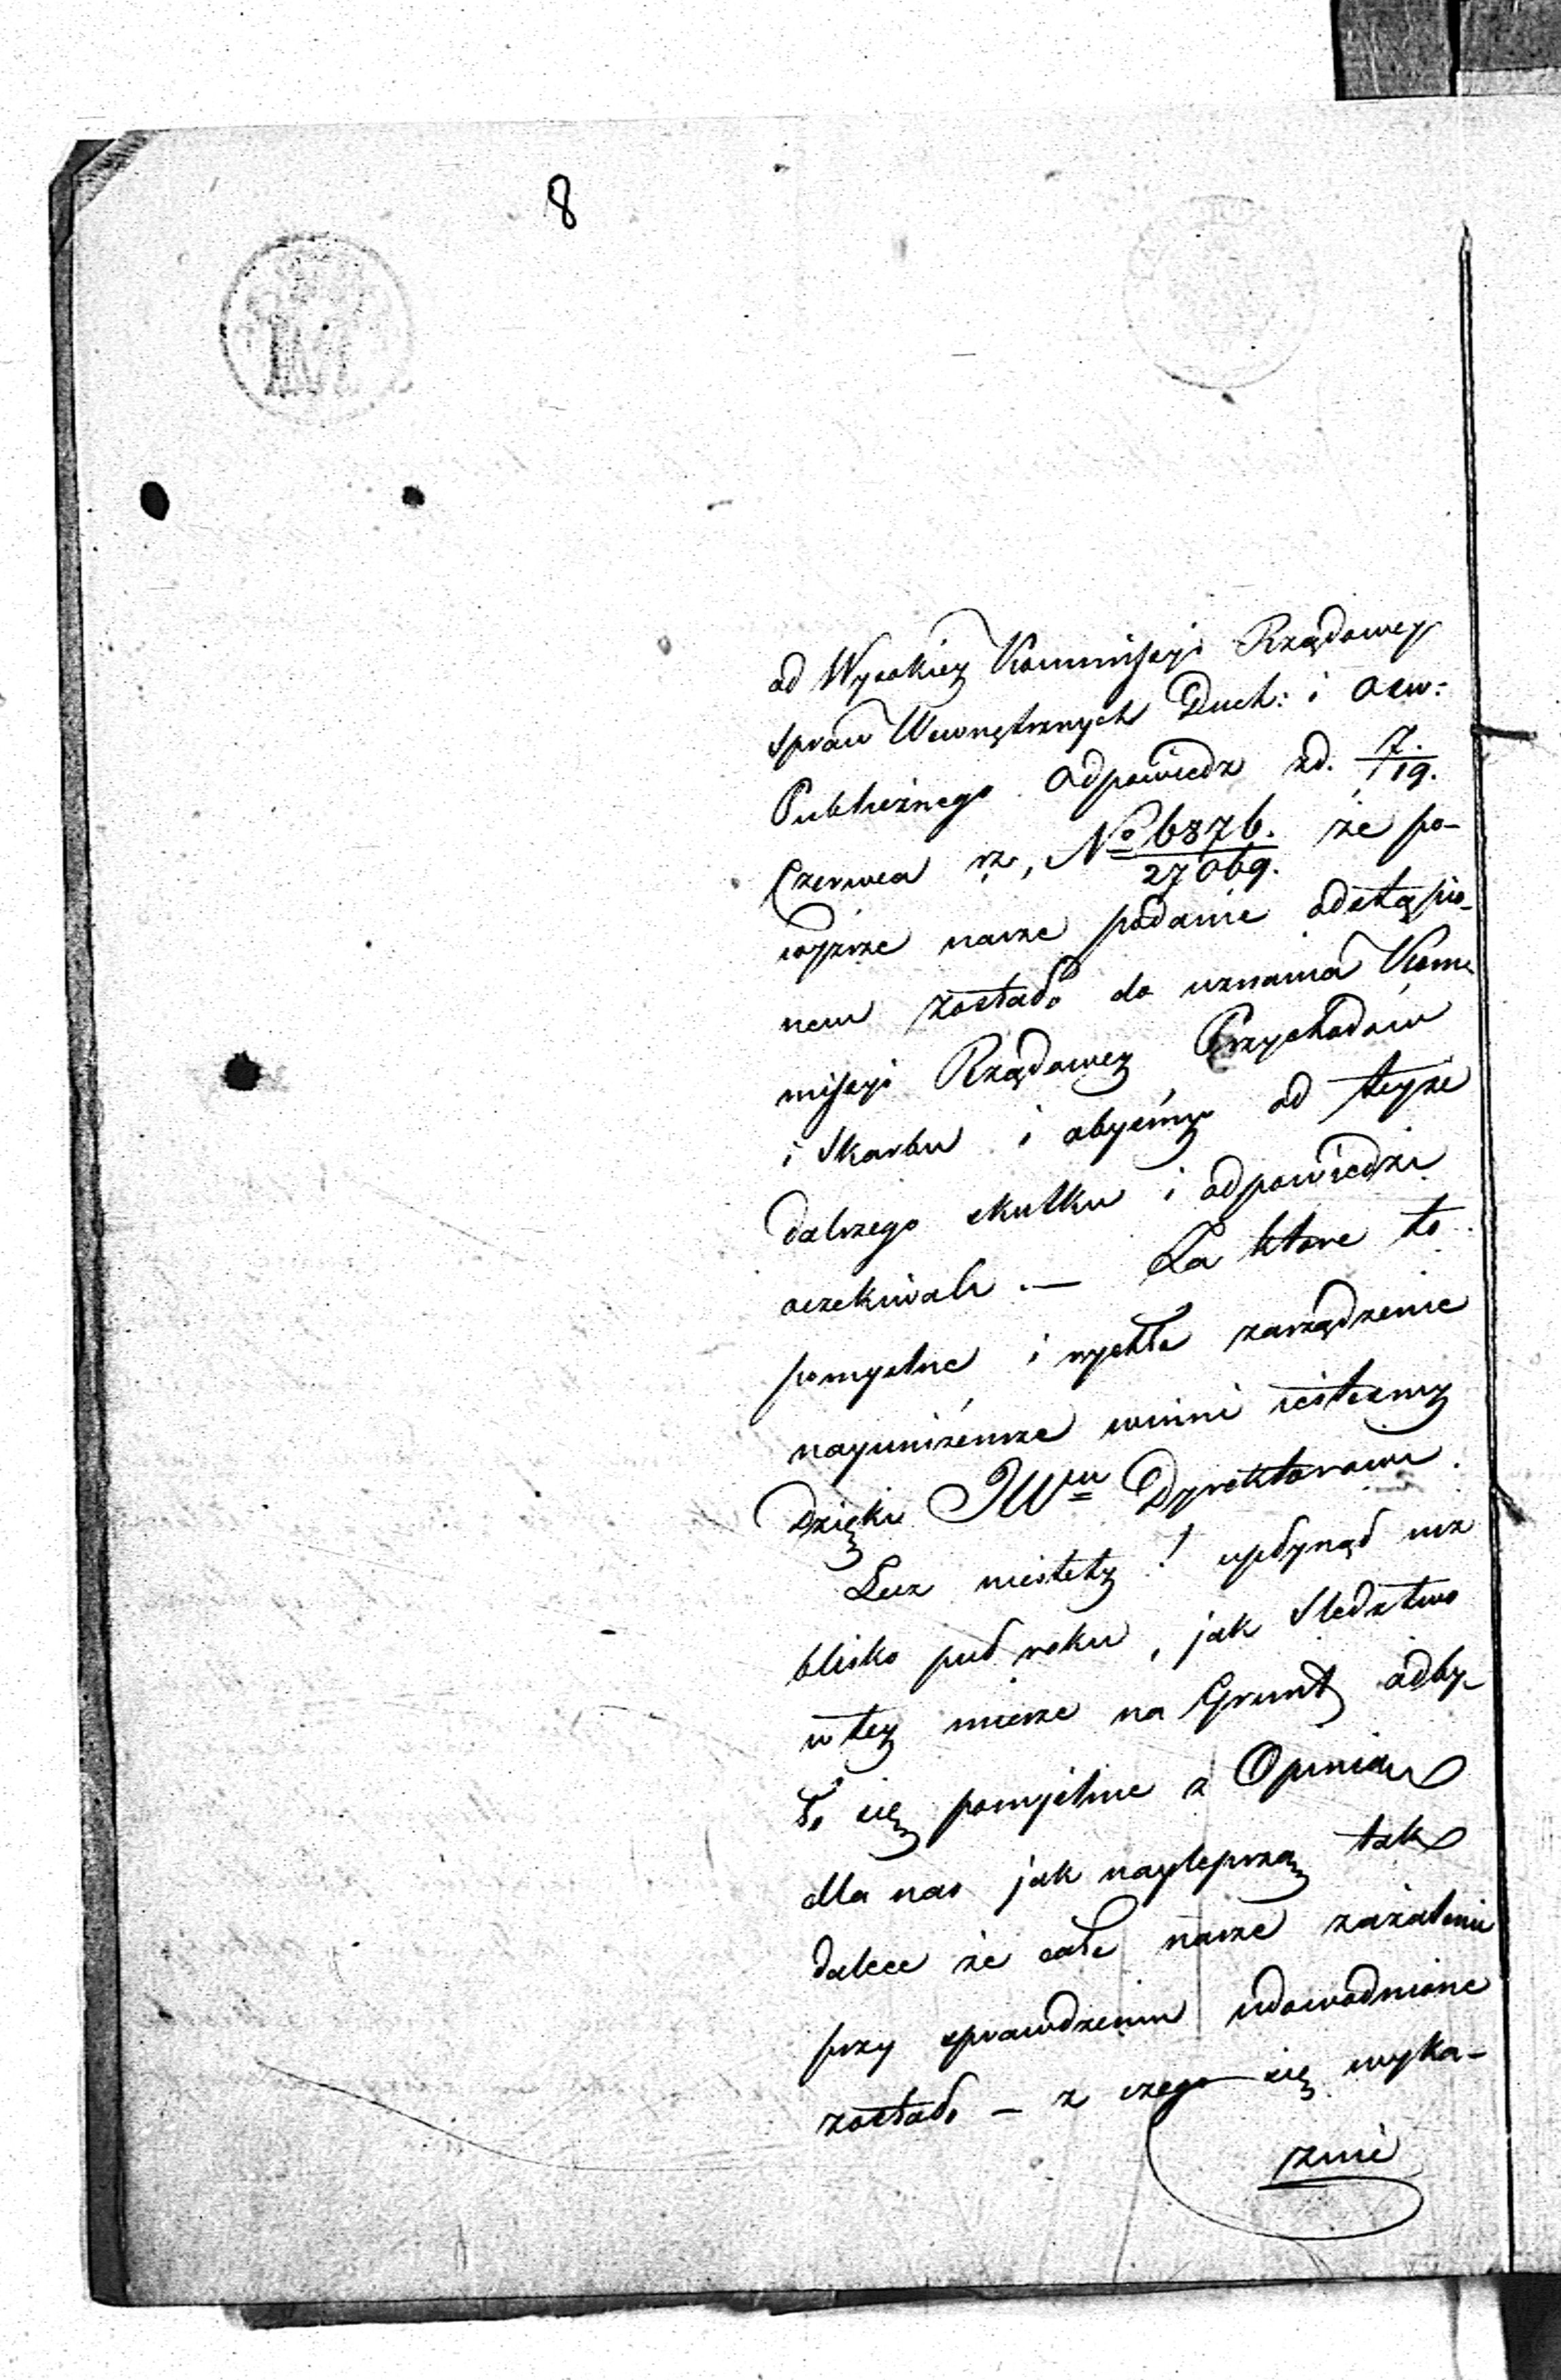 8
od Wysokiey Kommissyi Rządowey
Spraw Wewnętrznych Duch: i Ośw:
Publicznego odpowiedz zd. 7./19.
Czerwca rz, No 6876./27069. że po-
wyższe nasze podanie odstąpio-
nem zostało do uznania Kom-
missyi Rządowey Przychodów
i Skarbu i abyśmy od teyże
dalszego skutku i odpowiedzi
oczekiwali. — Za które to
pomyslne i rychłe zarządzenie
nayuniżeńsze winni iesteśmy
dzięki JWmu Dyrektorowi.
Lecz niestety! upłynął uż
blisko puł roku, jak Sledztwo
w tey mierze na Grunt odby-
ło się pomyślnie z Opinią
dla nas jak naylepszą tak
dalece że całe nasze zażalenie
przy sprawdzeniu udowodnione
zostało — z czego się wyka-
zuie